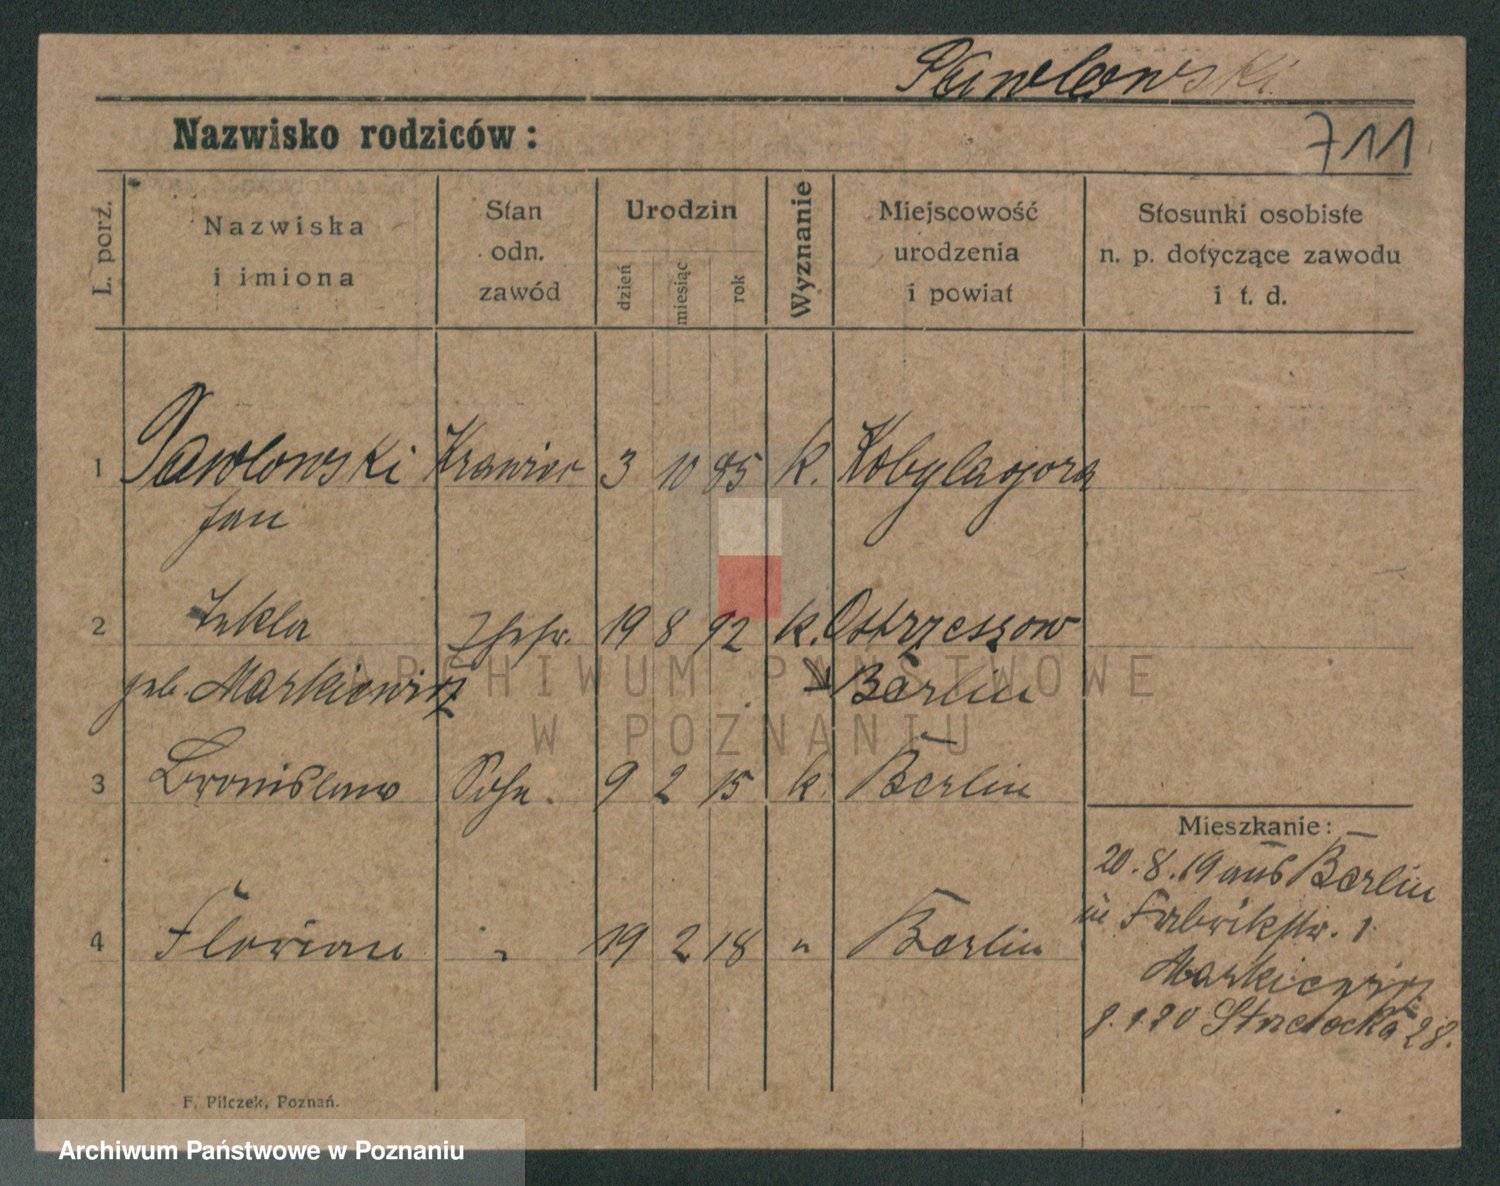 Pawlowski
Nazwisko rodziców:
711
L. porz.
Nazwiska
i imiona
Stan
odn.
zawód
Urodzin
dzień
miesiąc
rok
Wyznanie
Miejscowość
urodzenia
i powiat
Stosunki osobiste
n. p. dotyczące zawodu
i t. d.
1 Pawlowski Krawiec 3 10 85 k. Kobylagora
Jan
2 Tekla Ehefr. 19 8 92 k. Ostrzeszow
geb. Markiewicz Berlin
3 Bronislaw Sohn. 9 2 15 k. Berlin
4 Florian " 19 2 18 " Berlin
Mieszkanie:
20.8.19 aus Berlin
in Fabrikstr. 1
Markiewicz
Strzelecka 28.
F. Pilczek, Poznań.
ARCHIWUM PAŃSTWOWE
W POZNANIU
Archiwum Państwowe w Poznaniu